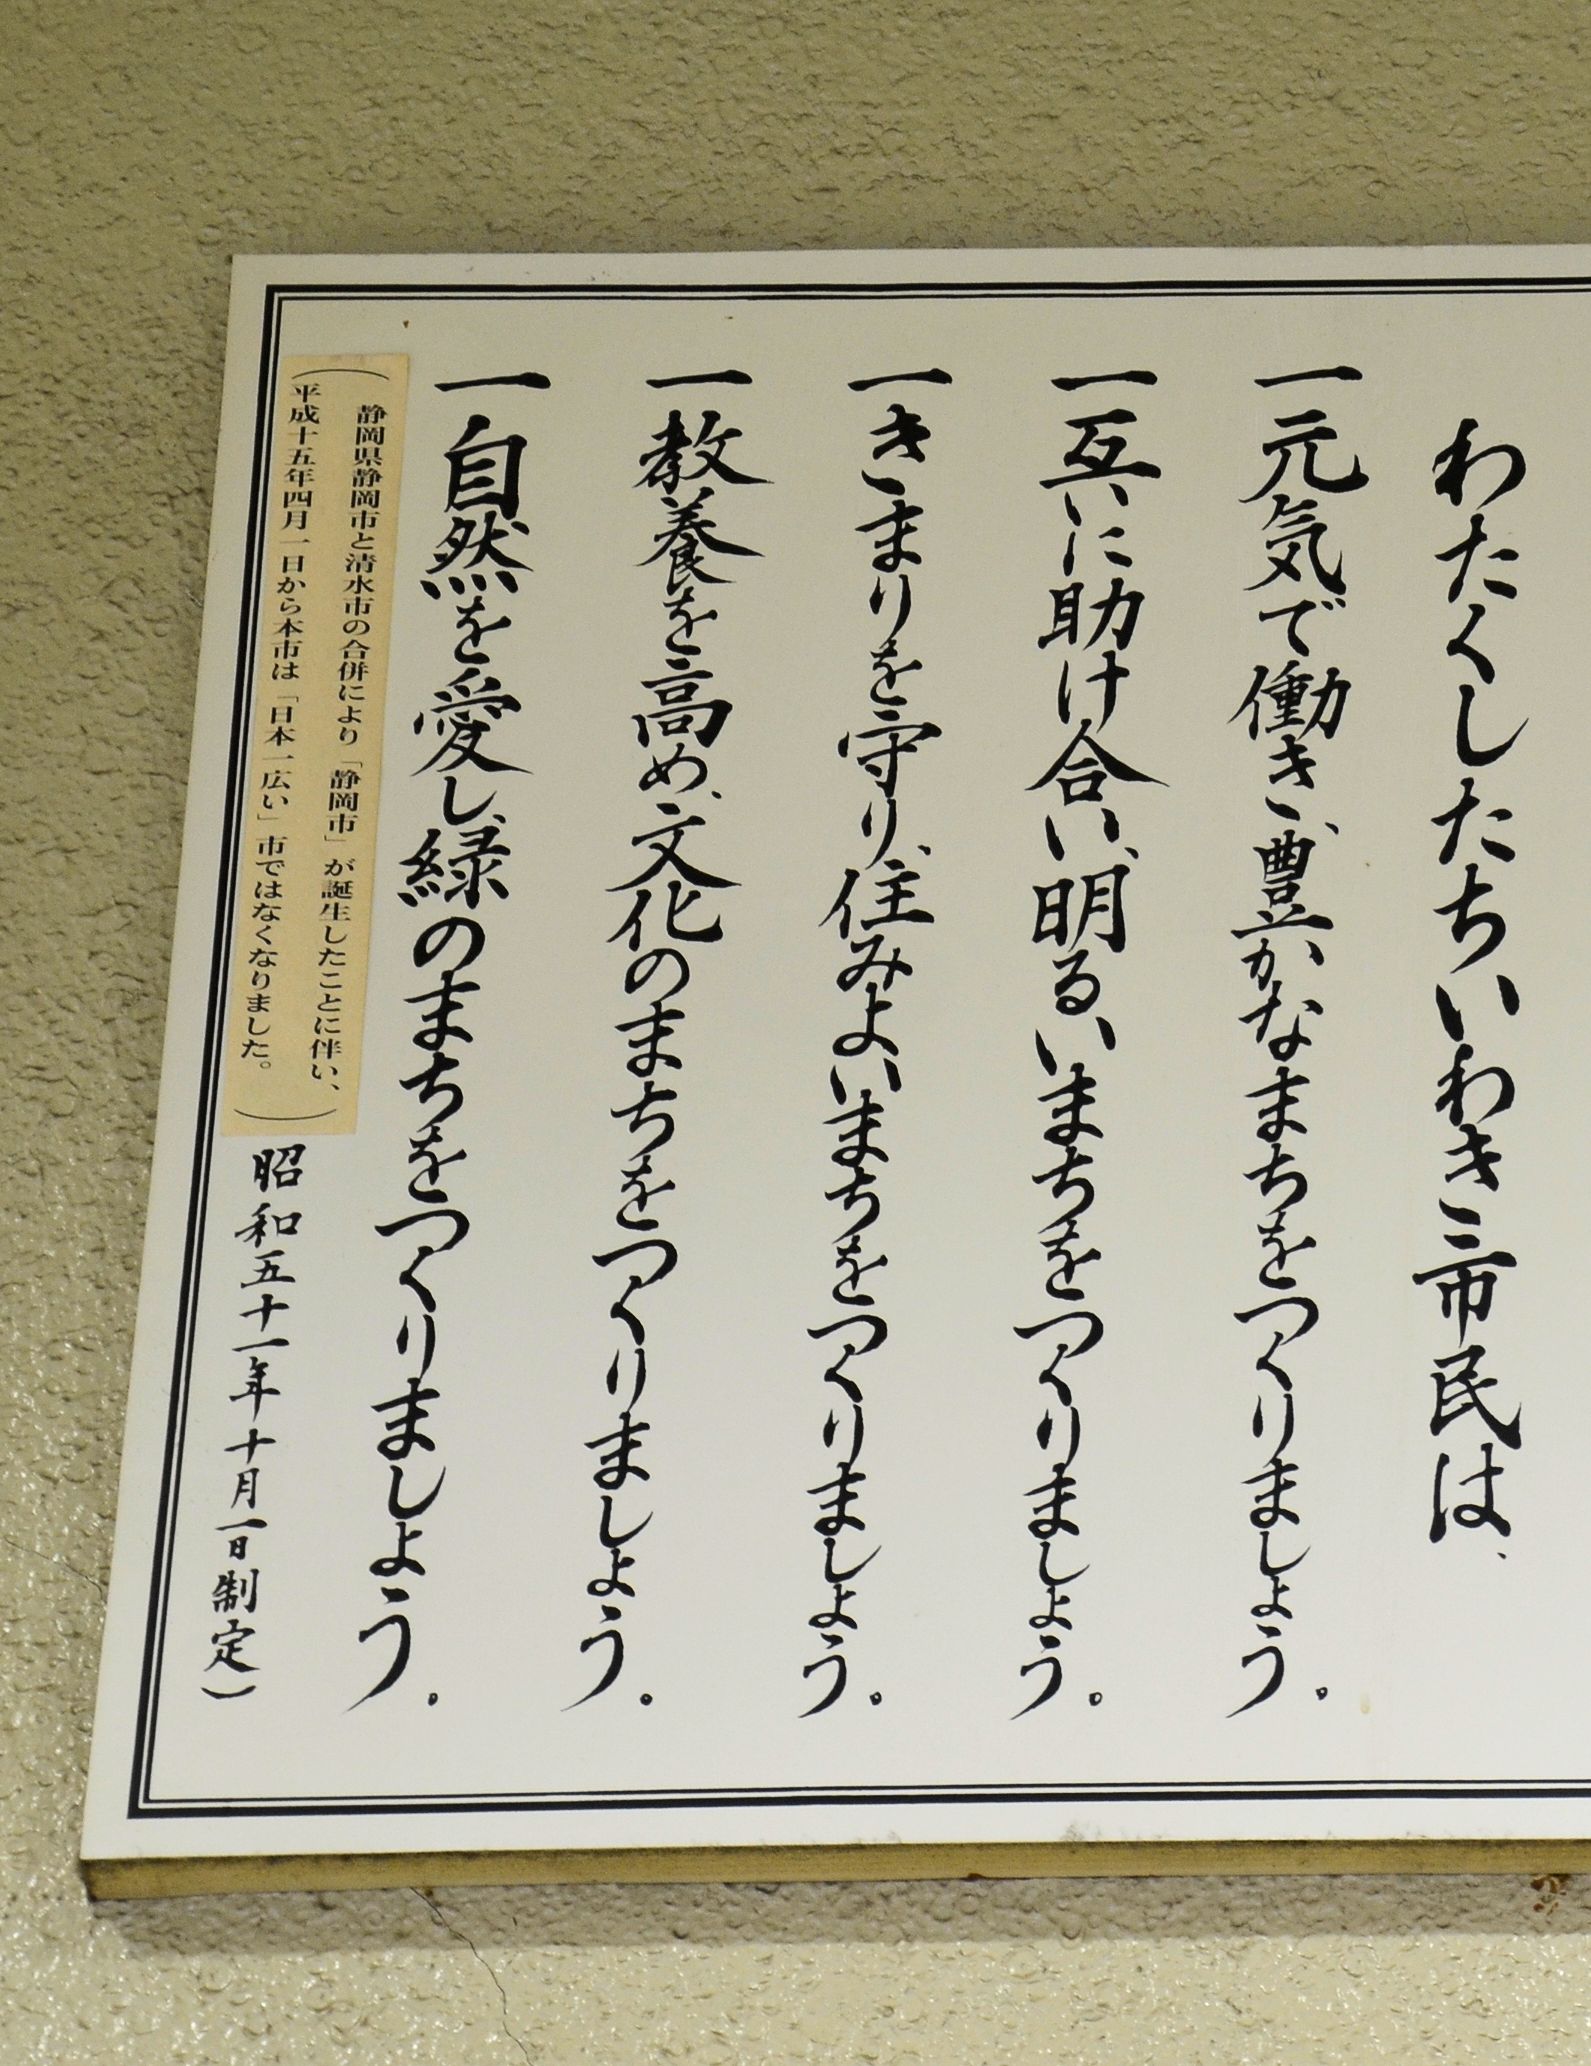 わたくしたちいわき市民は、
一 元気で働き、豊かなまちをつくりましょう。
一 互いに助け合い、明るいまちをつくりましょう。
一 きまりを守り、住みよいまちをつくりましょう。
一 教養を高め、文化のまちをつくりましょう。
一 自然を愛し、緑のまちをつくりましょう。
（静岡県静岡市と清水市の合併により「静岡市」が誕生したことに伴い、
平成十五年四月一日から本市は「日本一広い」市ではなくなりました。）
昭和五十一年十月一日制定）